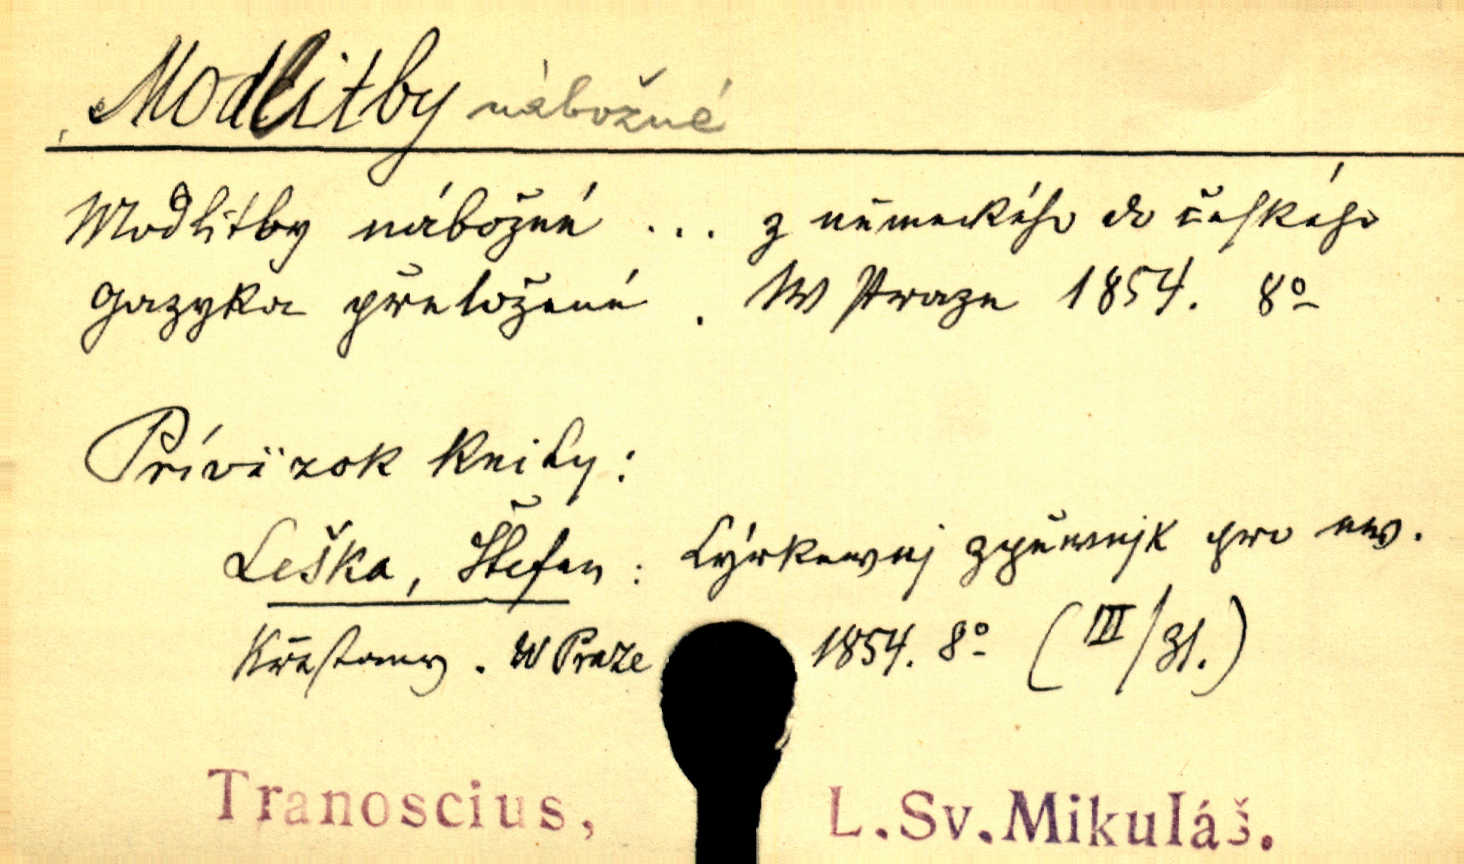 Modlitby nábožné
Modlitby nábožné ... z německého do českého
gazyka přeložené. W Praze 1854. 8º
Príväzok knihy:
Leška, Štefan: Cýrkewnj zpěwnjk pro ew.
Křesťany. W Praze 1854. 8º (III/31.)
Tranoscius, L.Sv.Mikuláš.